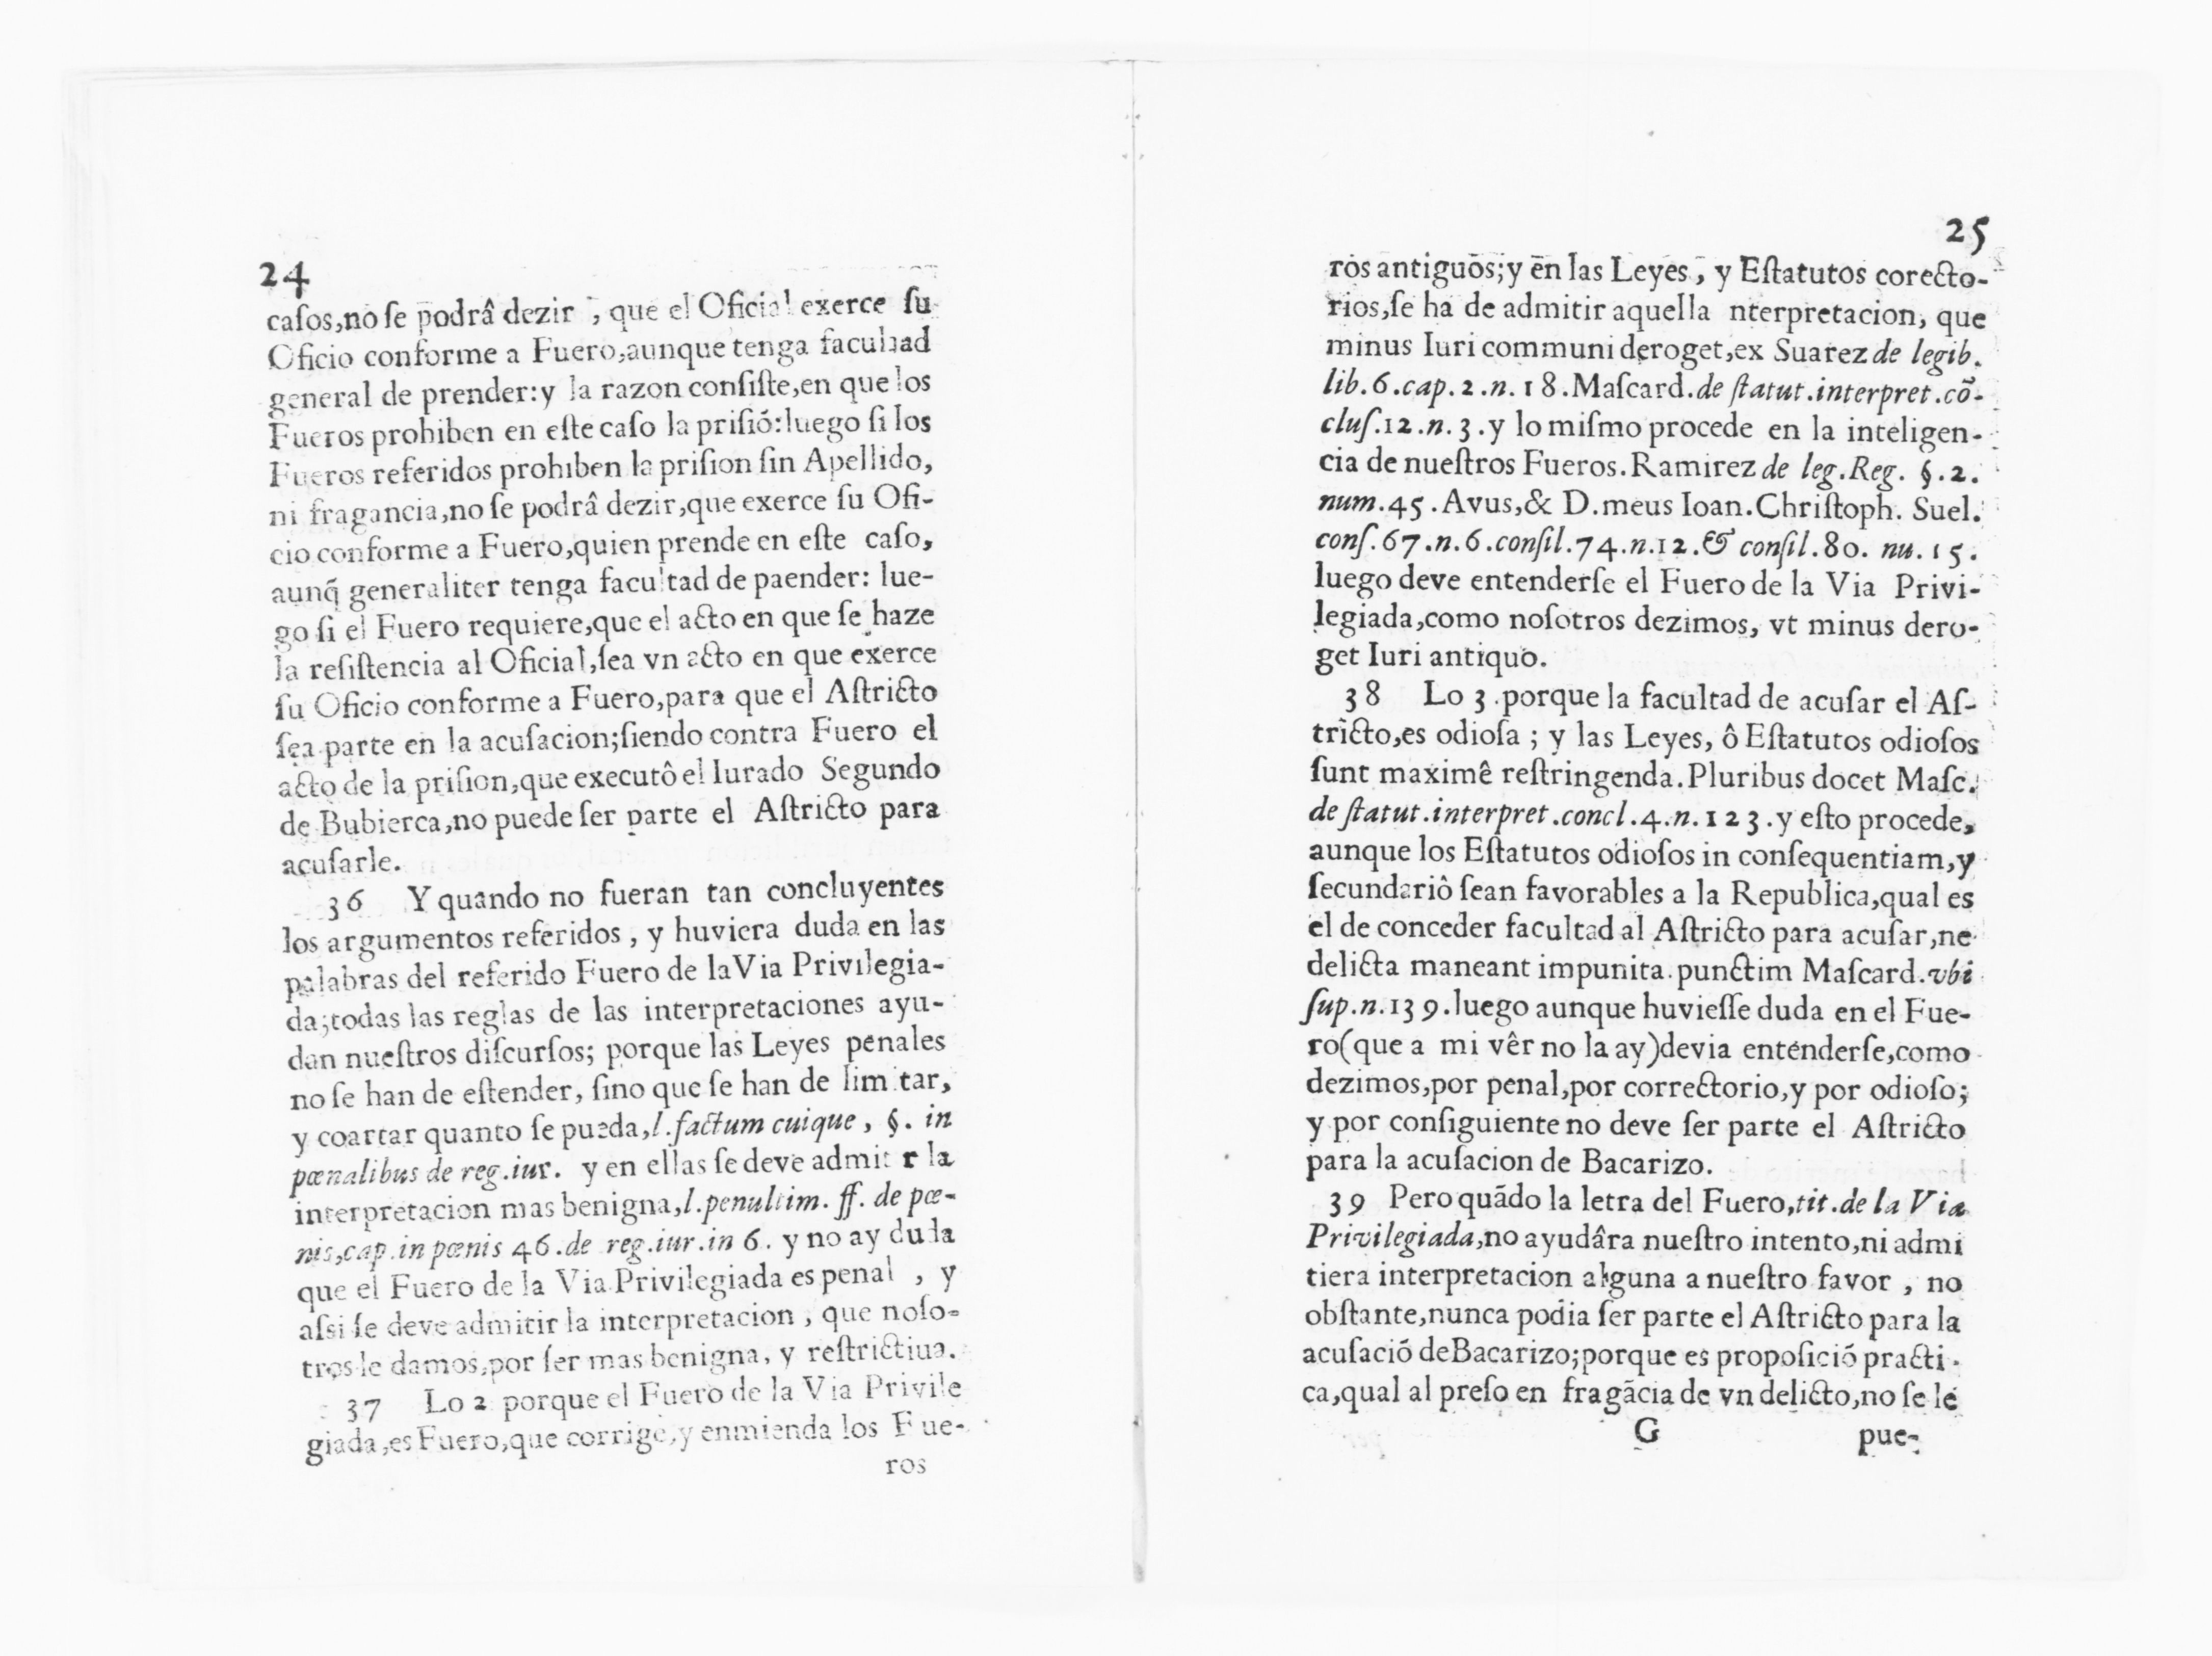 24
casos,no se podrâ dezir , que el Oficial exerce su
Oficio conforme a Fuero,aunque tenga facultad
general de prender:y la razon consiste,en que los
Fueros prohiben en este caso la prisió:luego si los
Fueros referidos prohiben la prision sin Apellido,
ni fragancia,no se podrâ dezir,que exerce su Ofi-
cio conforme a Fuero,quien prende en este caso,
aunq̃ generaliter tenga facultad de paender: lue-
go si el Fuero requiere,que el acto en que se haze
la resistencia al Oficial,sea vn acto en que exerce
su Oficio conforme a Fuero,para que el Astricto
sea parte en la acusacion;siendo contra Fuero el
acto de la prision,que executô el Iurado Segundo
de Bubierca,no puede ser parte el Astricto para
acusarle.
36 Y quando no fueran tan concluyentes
los argumentos referidos , y huviera duda en las
palabras del referido Fuero de la Via Privilegia-
da;todas las reglas de las interpretaciones ayu-
dan nuestros discursos; porque las Leyes penales
no se han de estender, sino que se han de lim tar,
y coartar quanto se pueda,l.factum cuique , §. in
pœnalibus de reg.iur. y en ellas se deve admit r la
interpretacion mas benigna,l.penultim. ff. de pœ-
nis,cap.in pœnis 46.de reg.iur.in 6. y no ay duda
que el Fuero de la Via Privilegiada es penal , y
assi se deve admitir la interpretacion , que noso-
tros le damos,por ser mas benigna, y restrictiua.
37 Lo 2 porque el Fuero de la Via Privile
giada,es Fuero,que corrige,y enmienda los Fue-
ros
25
ros antiguos;y en las Leyes , y Estatutos corecto-
rios,se ha de admitir aquella nterpretacion, que
minus Iuri communi deroget,ex Suarez de legib.
lib.6.cap.2.n.18.Mascard.de statut.interpret.cõ-
clus.12.n.3.y lo mismo procede en la inteligen-
cia de nuestros Fueros.Ramirez de leg.Reg. §.2.
num.45.Avus,& D.meus Ioan.Christoph. Suel.
cons.67.n.6.consil.74.n.12.& consil.80. nu.15.
luego deve entenderse el Fuero de la Via Privi-
legiada,como nosotros dezimos, vt minus dero-
get Iuri antiquo.
38 Lo 3.porque la facultad de acusar el As-
tricto,es odiosa ; y las Leyes, ô Estatutos odiosos
sunt maximê restringenda.Pluribus docet Masc.
de statut.interpret.concl.4.n.123.y esto procede,
aunque los Estatutos odiosos in consequentiam,y
secundariô sean favorables a la Republica,qual es
el de conceder facultad al Astricto para acusar,ne
delicta maneant impunita.punctim Mascard.vbi
sup.n.139.luego aunque huviesse duda en el Fue-
ro(que a mi vêr no la ay)devia entenderse,como
dezimos,por penal,por correctorio,y por odioso;
y por consiguiente no deve ser parte el Astricto
para la acusacion de Bacarizo.
39 Pero quãdo la letra del Fuero,tit.de la Via
Privilegiada,no ayudâra nuestro intento,ni admi
tiera interpretacion alguna a nuestro favor , no
obstante,nunca podia ser parte el Astricto para la
acusació de Bacarizo;porque es proposició practi-
ca,qual al preso en fragãcia de vn delicto,no se le
G pue-